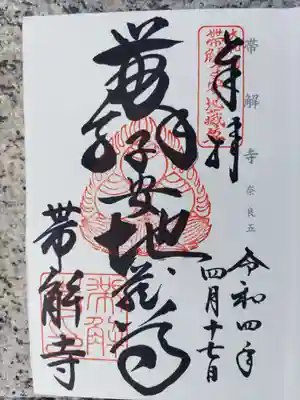 帯解寺 奈良五
奉拝
令和四年
四月十七日
帶解子安地蔵尊
帯解寺